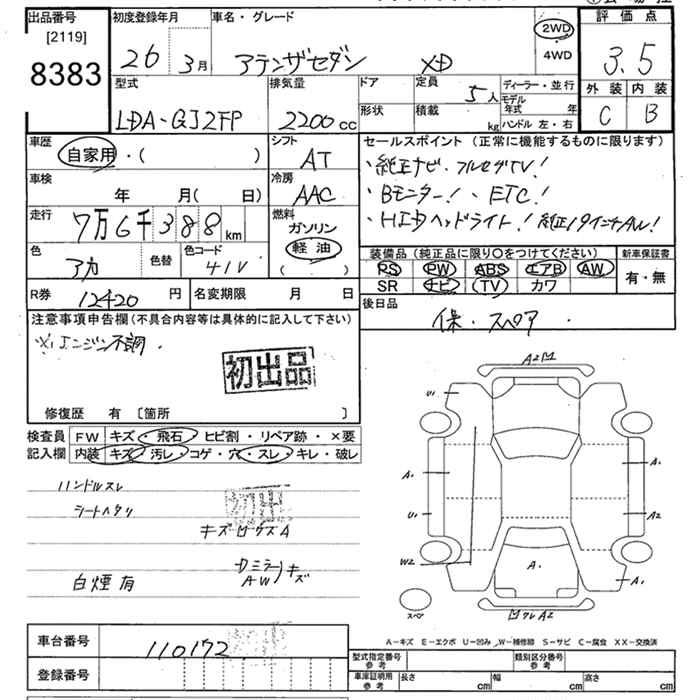 出品番号
[2119]
8383
初度登録年月
26 3月
車名・グレード
アテンザセダン XD
2WD
・
4WD
評価点
3.5
外装 内装
C B
型式
LDA-GJ2FP
排気量
2200cc
ドア
形状
定員
5人
積載
kg
ディーラー・並行
モデル年式 年
ハンドル 左・右
車歴
自家用・( )
シフト
AT
車検
年 月( 日)
冷房
AAC
走行
7万6千388km
燃料
ガソリン
軽油
( )
色
アカ
色替
色コード
41V
R券
12420円
名変期限 月 日
セールスポイント(正常に機能するものに限ります)
・純正ナビ・フルセグTV!
・Bモニター!・ETC!
・HIDヘッドライト!純正19インチAW!
装備品(純正品に限り○をつけてください)
PS PW ABS エアB AW
SR ナビ TV カワ
新車保証書
有・無
後日品
保・スペア
注意事項申告欄(不具合内容等は具体的に記入して下さい)
※エンジン不調
初出品
修復歴 有 [箇所 ]
検査員記入欄
FW キズ・飛石・ヒビ割・リペア跡・×要
内装 キズ・汚レ・コゲ・穴・スレ・キレ・破レ
ハンドルスレ
シートヘタリ
初出
キズ ロウスA
白煙有
Dミラー
AW
キズ
A2
U1
A1
U1
A2
W2
A1
A1
スペア
ワレA2
A-キズ E-エクボ U-凹み W-補修跡 S-サビ C-腐食 XX-交換済
車台番号
110172
登録番号
型式指定番号
参考
類別区分番号
参考
車庫証明用
参考
長さ cm
幅 cm
高さ cm